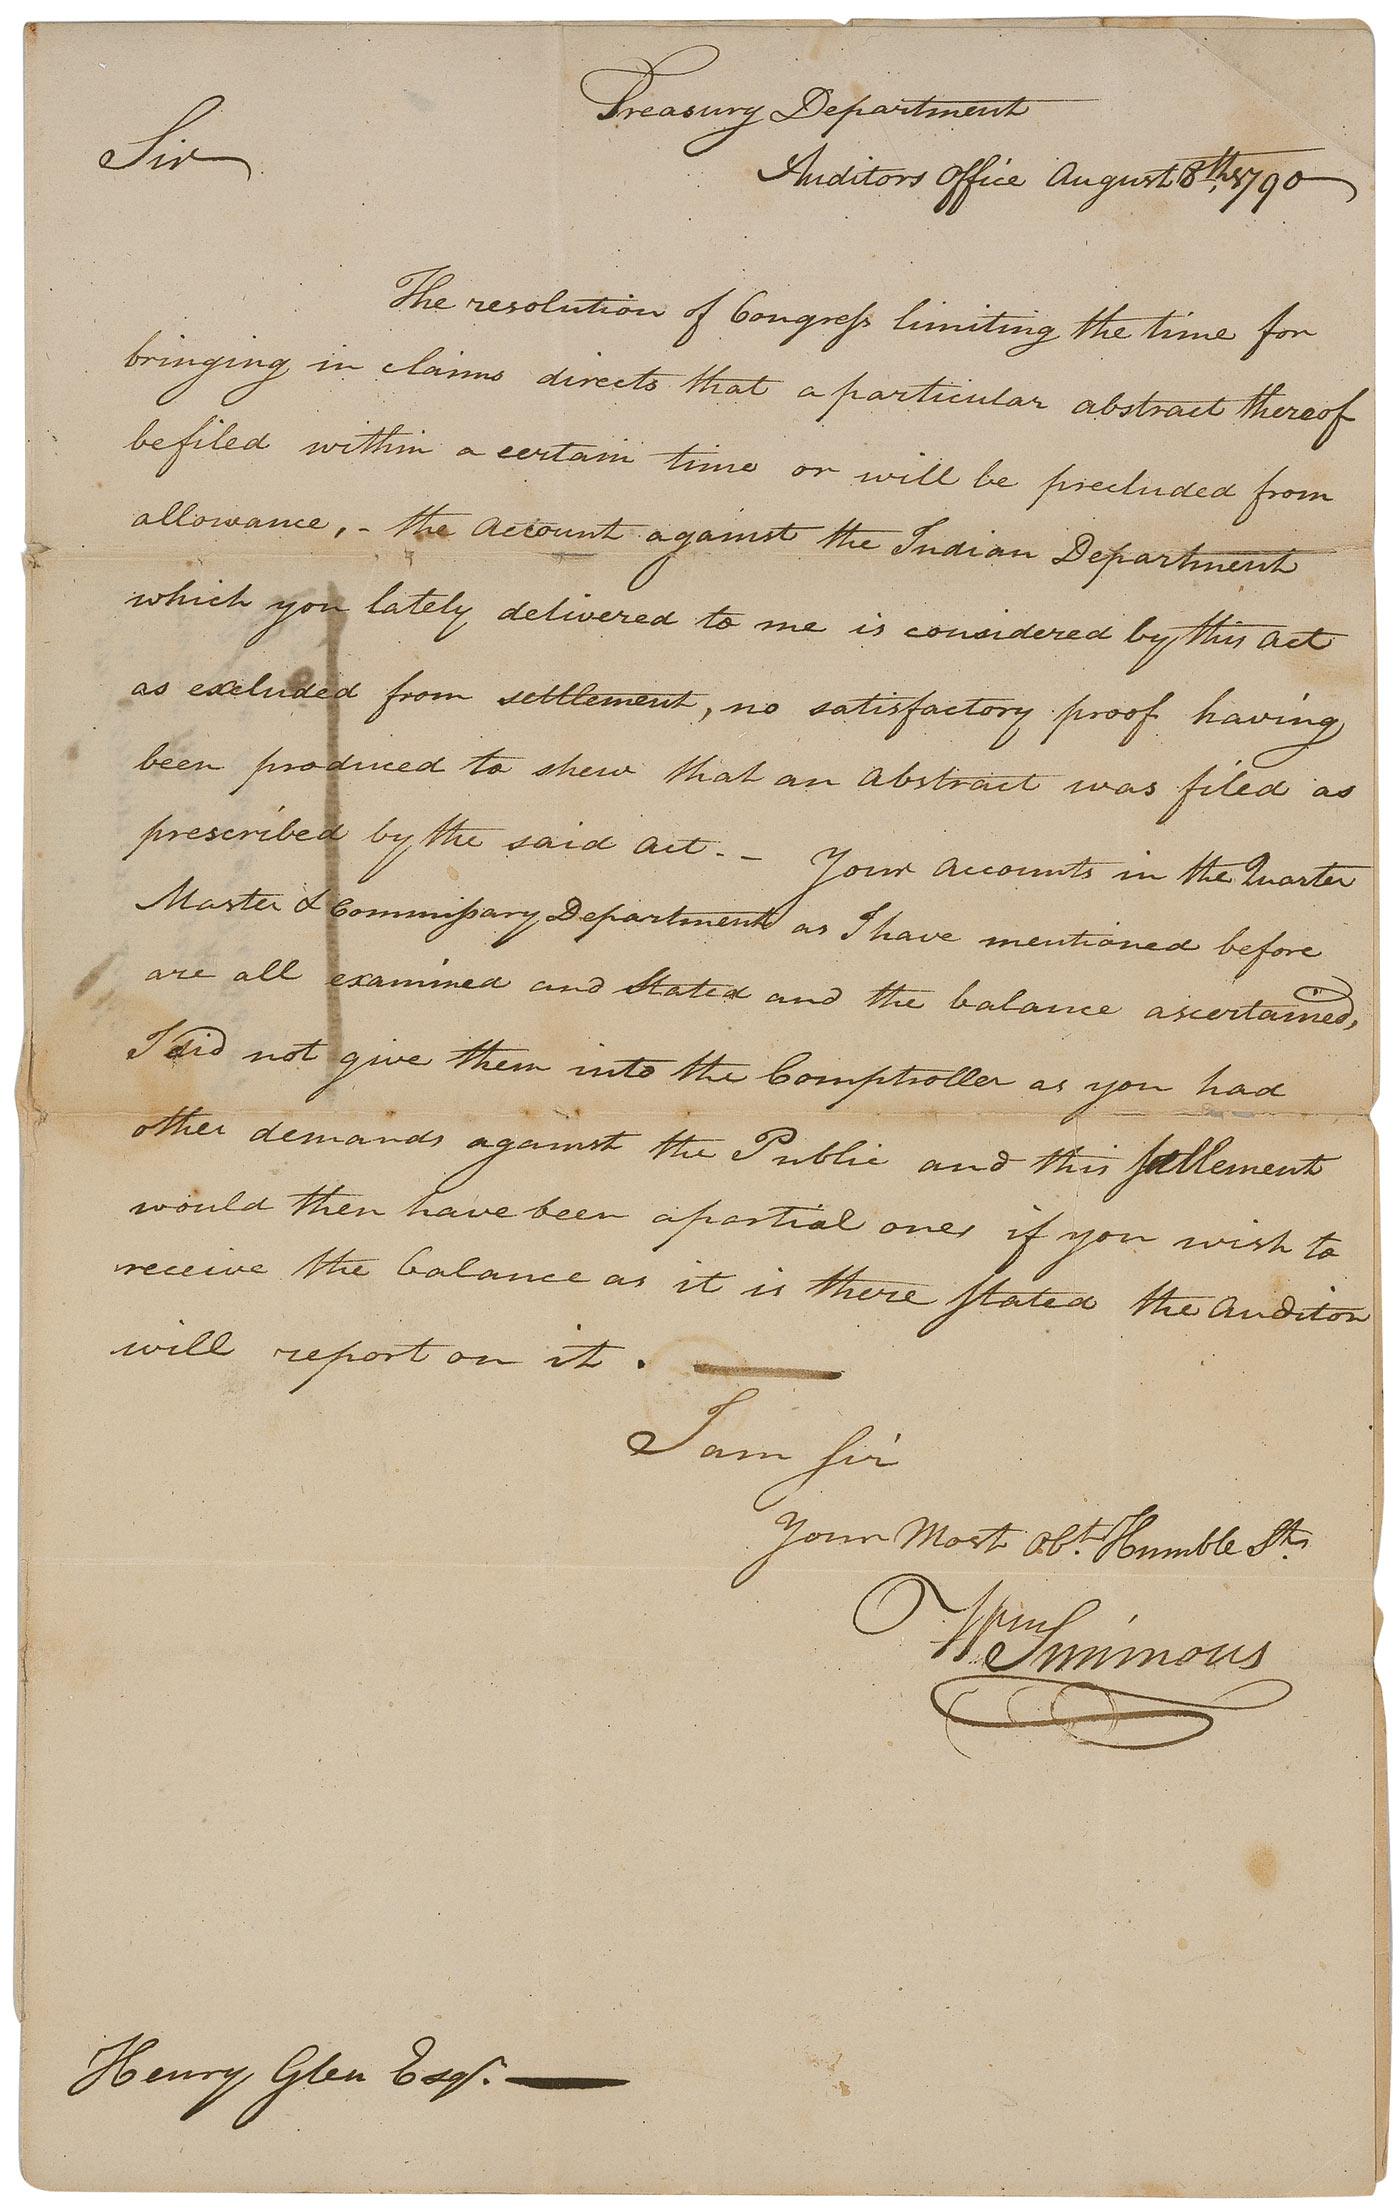 Treasury Department
Sir
Auditors Office August 8th, 1790
The resolution of Congress limiting the time for
bringing in claims directs that a particular abstract thereof
be filed within a certain time or will be precluded from
allowance, - the account against the Indian Department
which you lately delivered to me is considered by this act
as excluded from settlement, no satisfactory proof having
been produced to shew that an abstract was filed as
prescribed by the said act. - Your accounts in the Quarter
Master & Commissary Department as I have mentioned before
are all examined and Stated and the balance ascertained,
I did not give them into the Comptroller as you had
other demands against the Public and this settlement
would then have been a partial one, if you wish to
receive the balance as it is there stated the Auditor
will report on it.
I am Sir
Your Most Obt. Humble St.
Wm Simmons
Henry Glen Esqr.